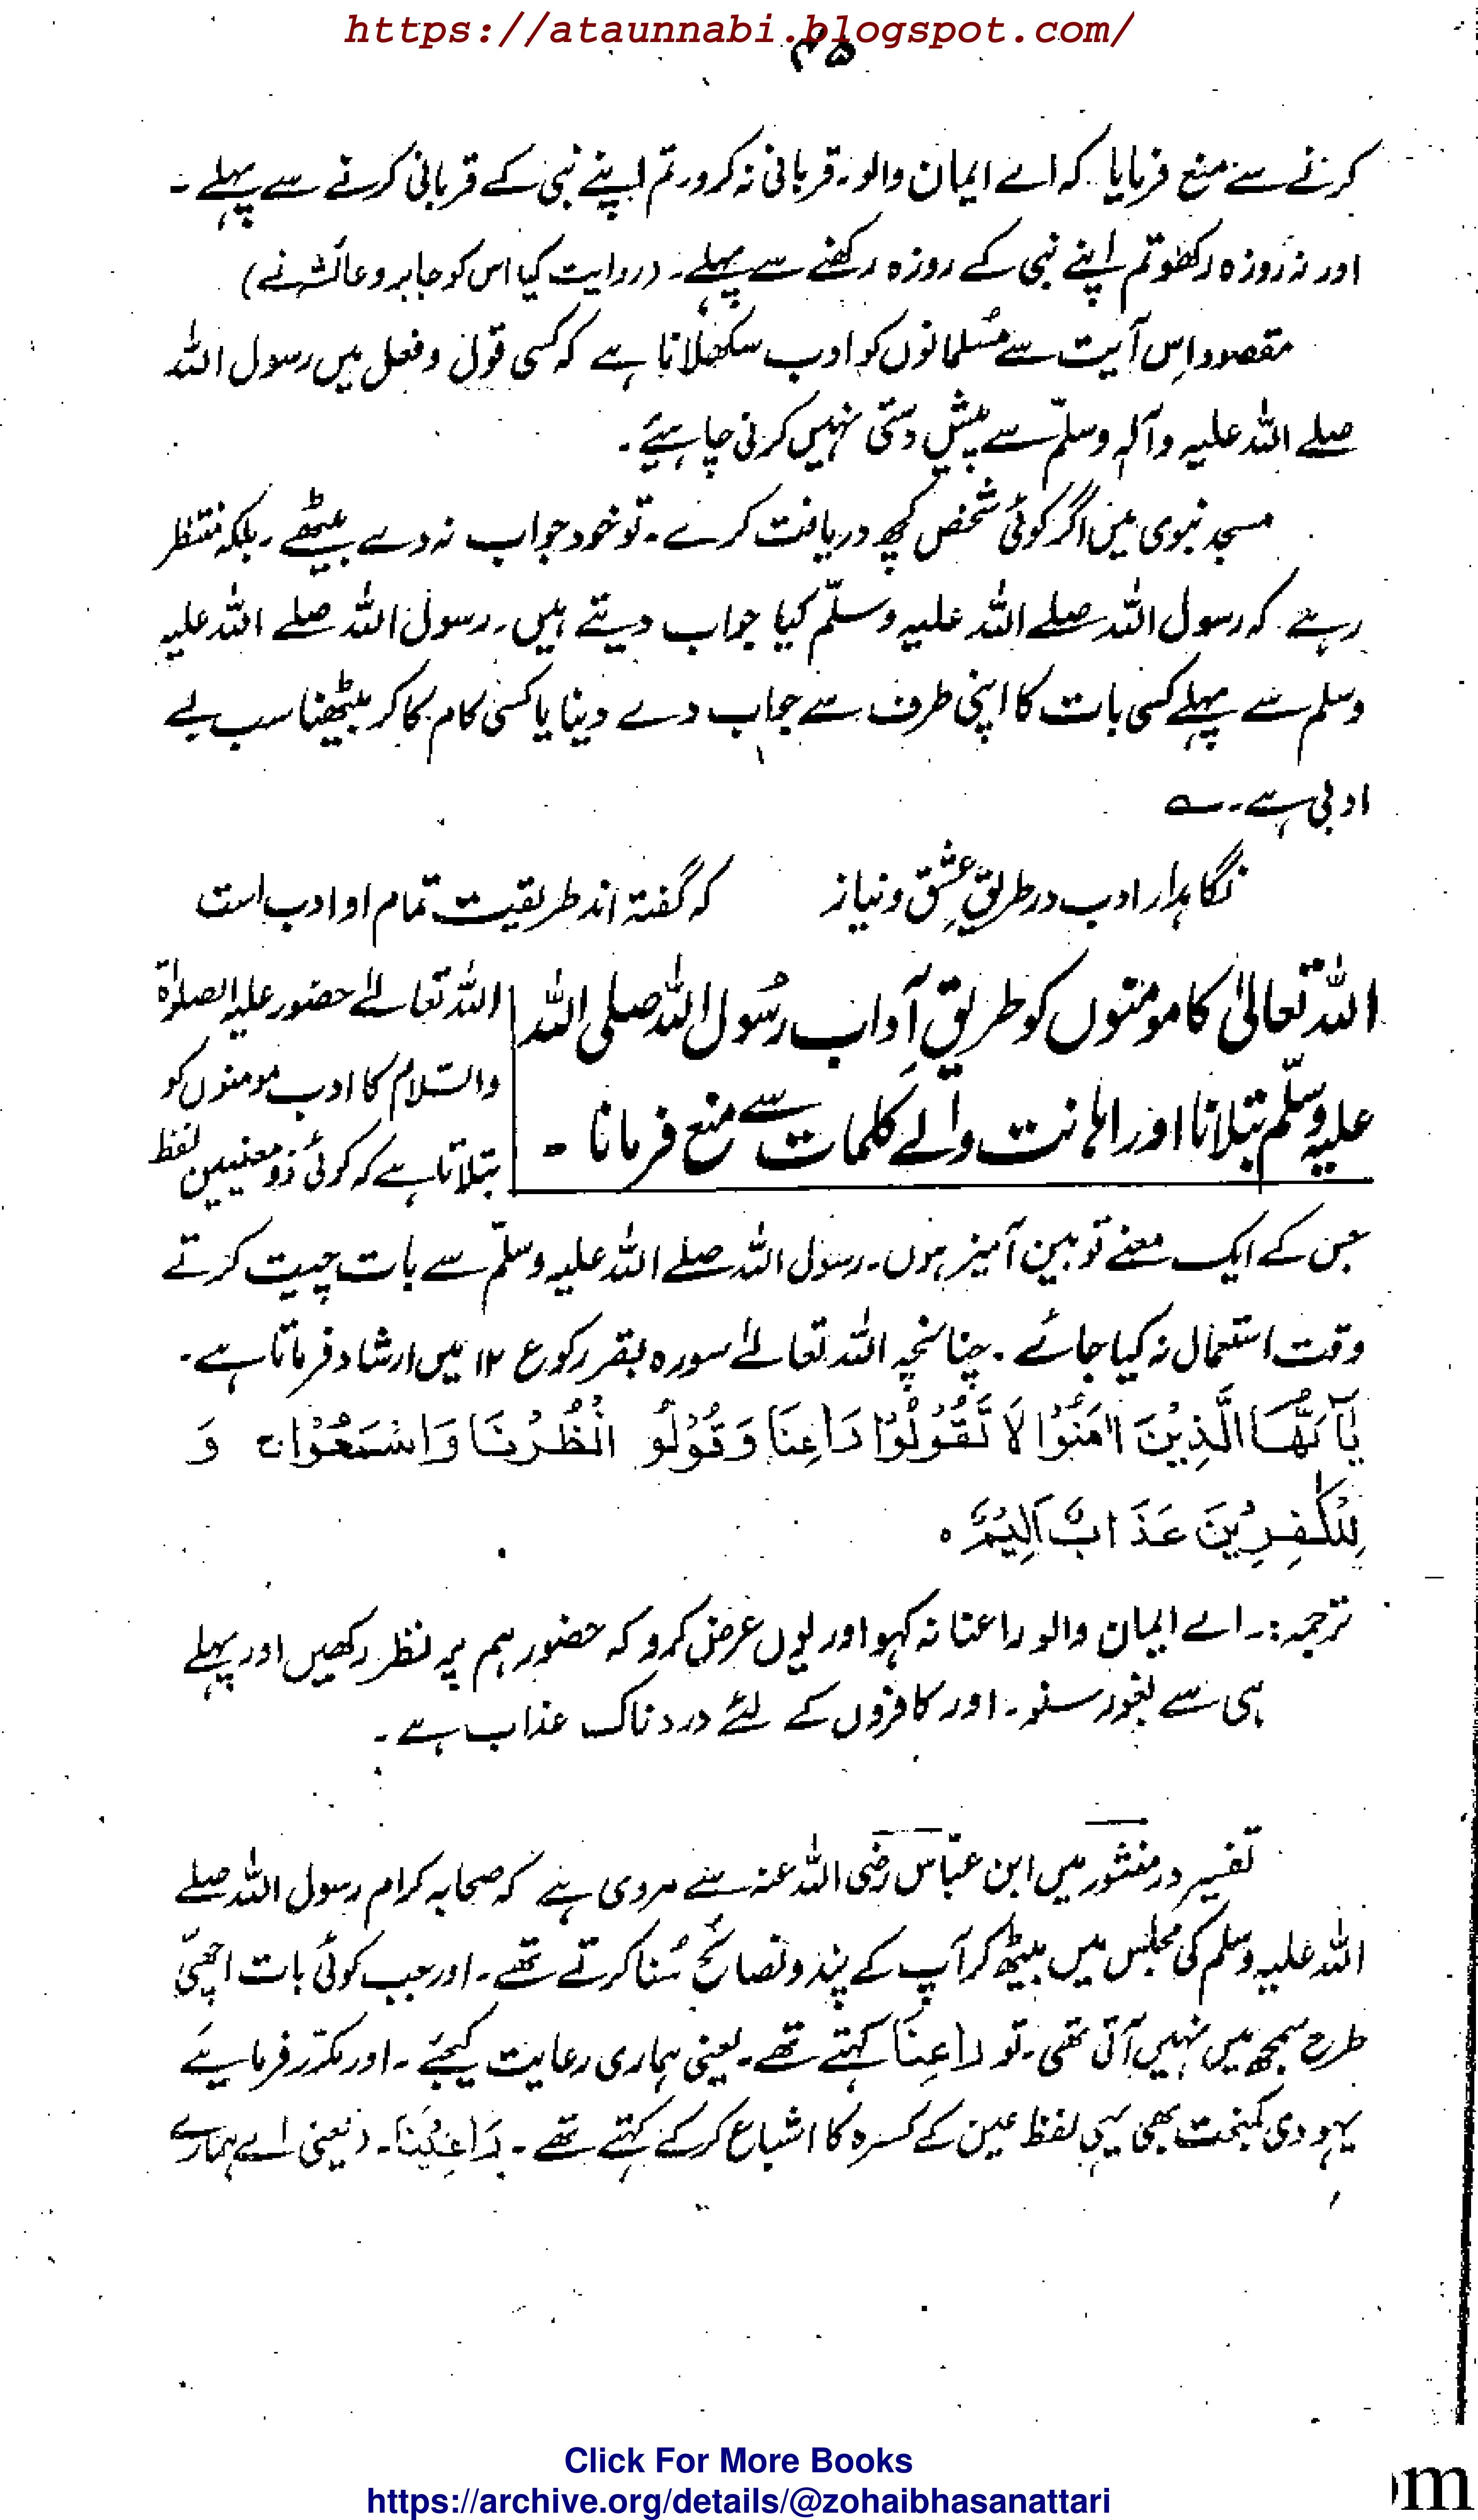 https://ataunnabi.blogspot.com/
۴۵
کرنے سے منع فرمایا کہ اے ایمان والو۔ قربانی نہ کرو۔ تم اپنے نبی کے قربانی کرنے سے پہلے۔
اور نہ روزہ رکھو تم اپنے نبی کے روزہ رکھنے سے پہلے۔ (روایت کیا اس کو جابر و عائشہ نے)
مقصود اِس آیت سے مُسلمانوں کو ادب سکھلانا ہے کہ کسی قول و فعل میں رسول اللہ
صلے اللہ علیہ وآلہٖ وسلّم سے پیش دستی نہیں کرنی چاہیئے۔
مسجد نبوی میں اگر کوئی شخص کچھ دریافت کرے۔ تو خود جواب نہ دے بیٹھے۔ بلکہ منتظر
رہے کہ رسول اللہ صلے اللہ علیہ وسلّم کیا جواب دیتے ہیں۔ رسول اللہ صلے اللہ علیہ
وسلم سے پہلے کسی بات کا اپنی طرف سے جواب دے دینا یا کسی کام کا کر بیٹھنا سب بے
ادبی ہے۔ ؎
نگاہدار ادب در طریقِ عشق و نیاز کہ گفتہ اند طریقت تمام او ادب است
اللہ تعالیٰ کا مومنوں کو طریقِ آدابِ رسُول اللہ صلی اللہ
علیہ وسلّم بتلانا اور اہانت والے کلمات سے منع فرمانا ۔
اللہ تعالےٰ حضور علیہ الصلوٰۃ
والسّلام کا ادب مومنوں کو
بتلاتا ہے کہ کوئی ذو معنیین لفظ
جس کے ایک معنے توہین آمیز ہوں۔ رسول اللہ صلے اللہ علیہ وسلّم سے بات چیت کرتے
وقت استعمال نہ کیا جائے۔ چنانچہ اللہ تعالےٰ سورہ بقر رکوع ۱۲ میں ارشاد فرماتا ہے۔
یٰۤاَیُّهَا الَّذِیْنَ اٰمَنُوْا لَا تَقُوْلُوْا رَاعِنَا وَقُوْلُو انْظُرْنَا وَاسْمَعُوْا ؕ وَ
لِلْکٰفِرِیْنَ عَذَابٌ اَلِیْمٌ ۰
ترجمہ:۔ اے ایمان والو راعنا نہ کہو اور یوں عرض کرو کہ حضور ہم پر نظر رکھیں اور پہلے
ہی سے بغور سنو۔ اور کافروں کے لئے دردناک عذاب ہے۔
تفسیر درمنثور میں ابن عبّاس رضی اللہ عنہ سے مروی ہے کہ صحابہ کرام رسول اللہ صلے
اللہ علیہ وسلم کی مجلس میں بیٹھ کر آپ کے پند و نصائح سُنا کرتے تھے۔ اور جب کوئی بات اچھّی
طرح سمجھ میں نہیں آتی تھی۔ تو رَاعِنَا کہتے تھے۔ یعنی ہماری رعایت کیجئے۔ اور مکرّر فرمایئے
یہودی کمبخت بھی یہی لفظ عین کے کسرہ کا اشباع کرکے کہتے تھے۔ رَاعِیْنَا۔ (یعنی اے ہمارے
Click For More Books
https://archive.org/details/@zohaibhasanattari
om